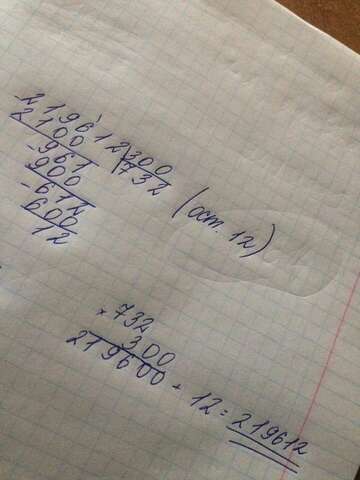 - 219612 | 300
2100 | 732 (ост. 12)
- 961
900
- 612
600
12
× 732
300
219600 + 12 = 219612